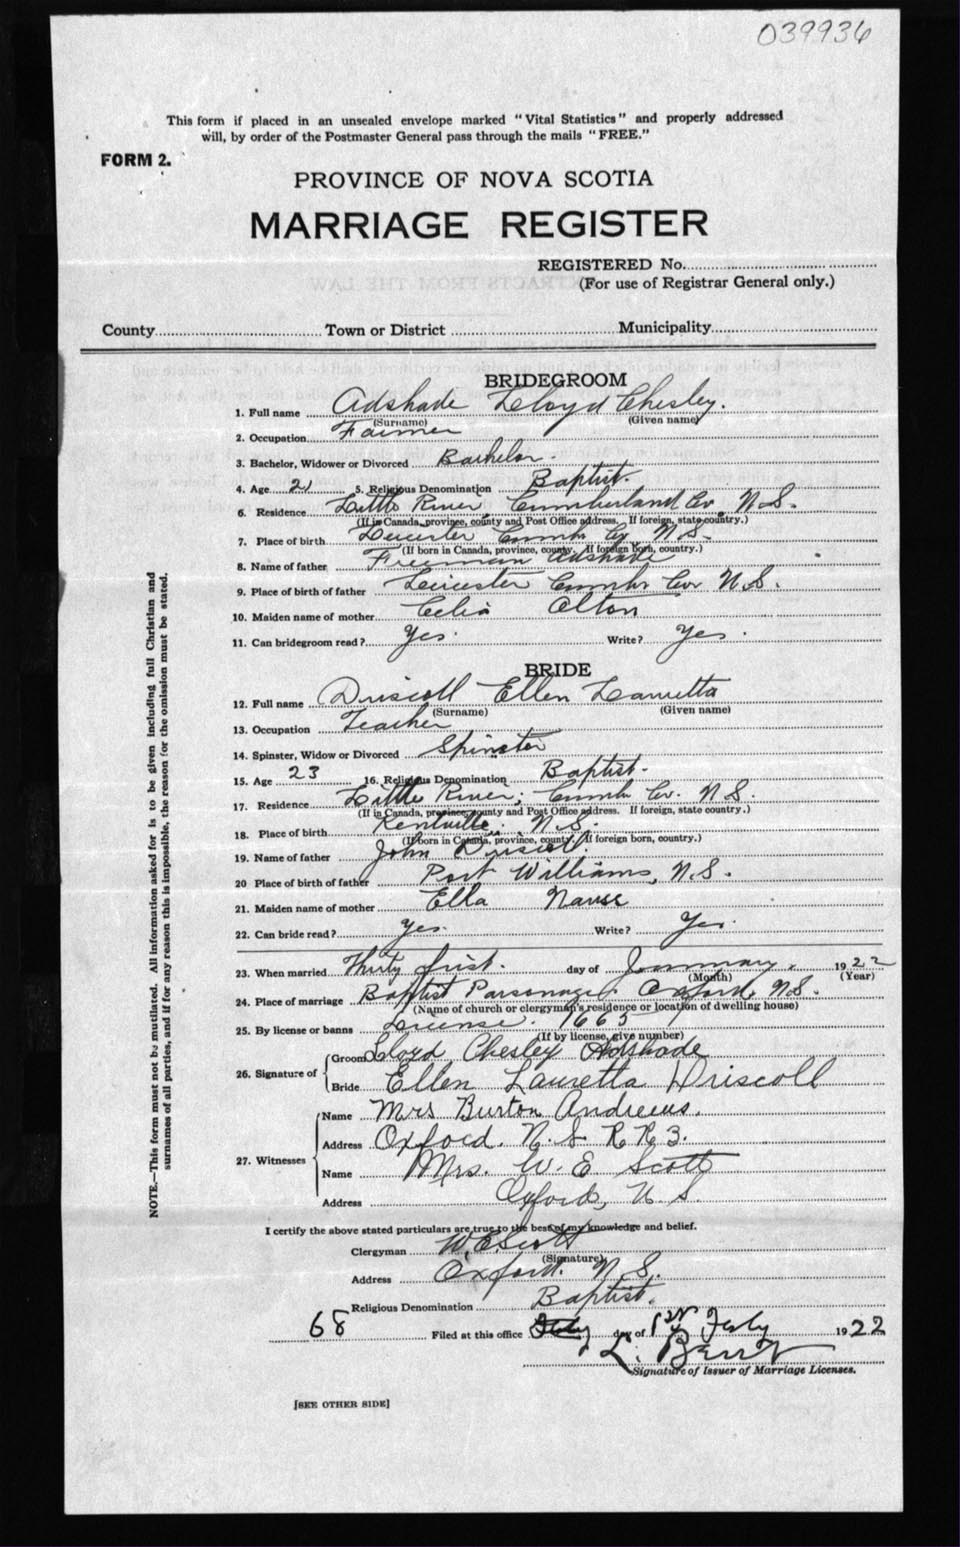 039936
This form if placed in an unsealed envelope marked "Vital Statistics" and properly addressed
will, by order of the Postmaster General pass through the mails "FREE."
FORM 2.
PROVINCE OF NOVA SCOTIA
MARRIAGE REGISTER
REGISTERED No.
(For use of Registrar General only.)
County Town or District Municipality
BRIDEGROOM
1. Full name Adshade Lloyd Chesley.
(Surname) (Given name)
2. Occupation Farmer
3. Bachelor, Widower or Divorced Bachelor
4. Age 21 5. Religious Denomination Baptist.
6. Residence Little River Cumberland Co. N.S.
(If in Canada, province, county and Post Office address. If foreign, state country.)
7. Place of birth Leicester Cumb Co N.S.
(If born in Canada, province, county. If foreign born, country.)
8. Name of father Freeman Adshade
9. Place of birth of father Leicester Cumb Co. N.S.
10. Maiden name of mother Celia
11. Can bridegroom read? Yes. Write? Yes.
BRIDE
12. Full name Driscoll Ellen Lauretta
(Surname) (Given name)
13. Occupation Teacher
14. Spinster, Widow or Divorced Spinster
15. Age 23 16. Religious Denomination Baptist.
17. Residence Little River, Cumb Co. N.S.
(If in Canada, province, county and Post Office address. If foreign, state country.)
18. Place of birth Kentville. N.S.
(If born in Canada, province, county. If foreign born, country.)
19. Name of father John Driscoll
20 Place of birth of father Port Williams, N.S.
21. Maiden name of mother Ella
22. Can bride read? Yes. Write? Yes.
23. When married Thirty first. day of January. 1922
(Month) (Year)
24. Place of marriage Baptist Parsonage, Oxford N.S.
(Name of church or clergyman's residence or location of dwelling house)
25. By license or banns License. 1665
(If by license, give number)
26. Signature of Groom Lloyd Chesley Adshade
Bride Ellen Lauretta Driscoll
27. Witnesses Name Mrs Burton Andrews.
Address Oxford. N.S. R R 3.
Name Mrs. W. E Scott
Address Oxford, N S.
I certify the above stated particulars are true to the best of my knowledge and belief.
Clergyman W. E. Scott
(Signature)
Address Oxford. N.S.
Religious Denomination Baptist.
68 Filed at this office day of Feby 1922
Signature of Issuer of Marriage Licenses.
[SEE OTHER SIDE]
NOTE.—This form must not be mutilated. All information asked for is to be given including full Christian and
surnames of all parties, and if for any reason this is impossible, the reason for the omission must be stated.